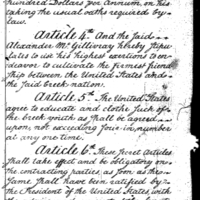 hundred Dollars per Annum, on his
taking the usual oaths required by
law.
Article 4th And the said
Alexander McGillivray hereby stipu-
lates to use his highest exertions to en-
deavor to cultivate the firmest friend-
ship between the United States and
the said Creek nation.
Article 5th The United States
agree to educate and clothe such of
the Creek youth as shall be agreed
upon, not exceeding four in number
at any one time.
Article 6th These secret Articles
shall take effect and be obligatory on
the contracting parties as soon as the
same shall have been ratified by
the President of the United States, with